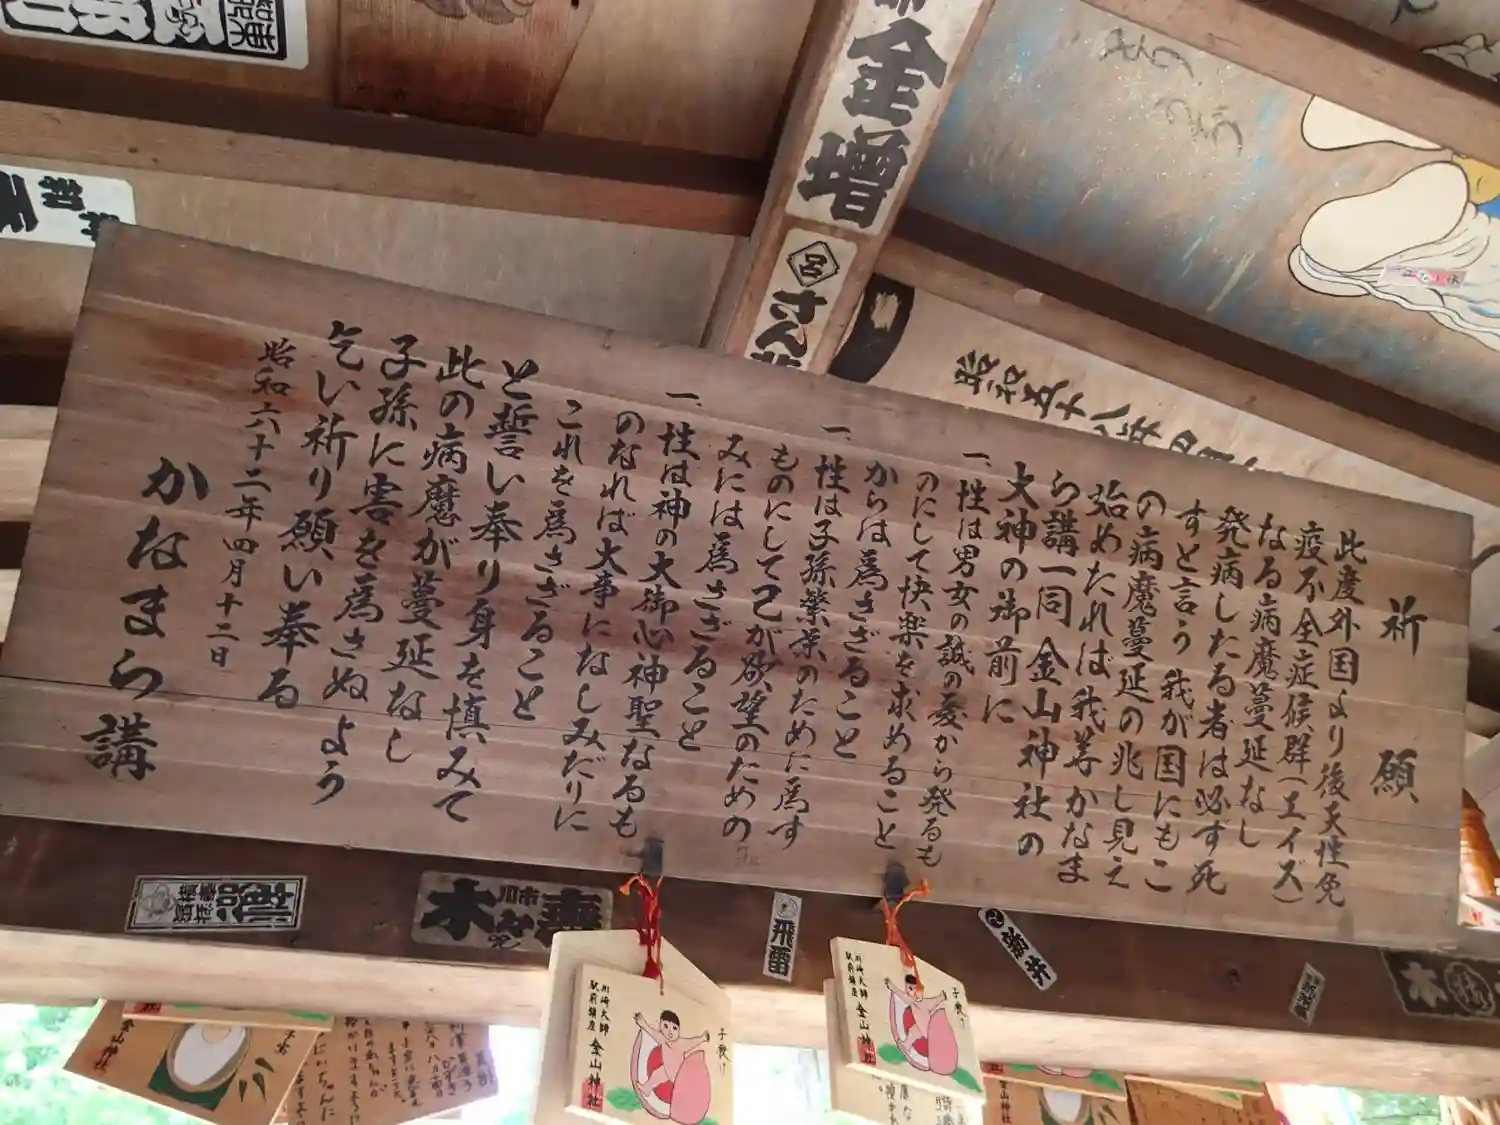 祈願
此度外国より後天性免
疫不全症候群(エイズ)
なる病魔蔓延なし
発病したる者は必す死
すと言う我が国にもこ
の病魔蔓延の兆し見え
始めたれば我等かなま
ら講一同金山神社の
大神の御前に
一、性は男女の誠の愛から発るも
のにして快楽を求めること
からは為さざること
一、性は子孫繁栄のために為す
ものにして己が欲望のための
みには為さざること
一、性は神の大御心神聖なるも
のなれば大事になしみだりに
これを為さざること
と誓い奉り身を慎みて
此の病魔が蔓延なし
子孫に害を為さぬよう
乞い祈り願い奉る
昭和六十二年四月十二日
かなまら講
金増
呂
さん
昭和五十八年
飛雷
木
寿
川崎大師
駅前鎮座
金山神社
子授け
川崎大師
駅前鎮座
金山神社
子授け
金山神社